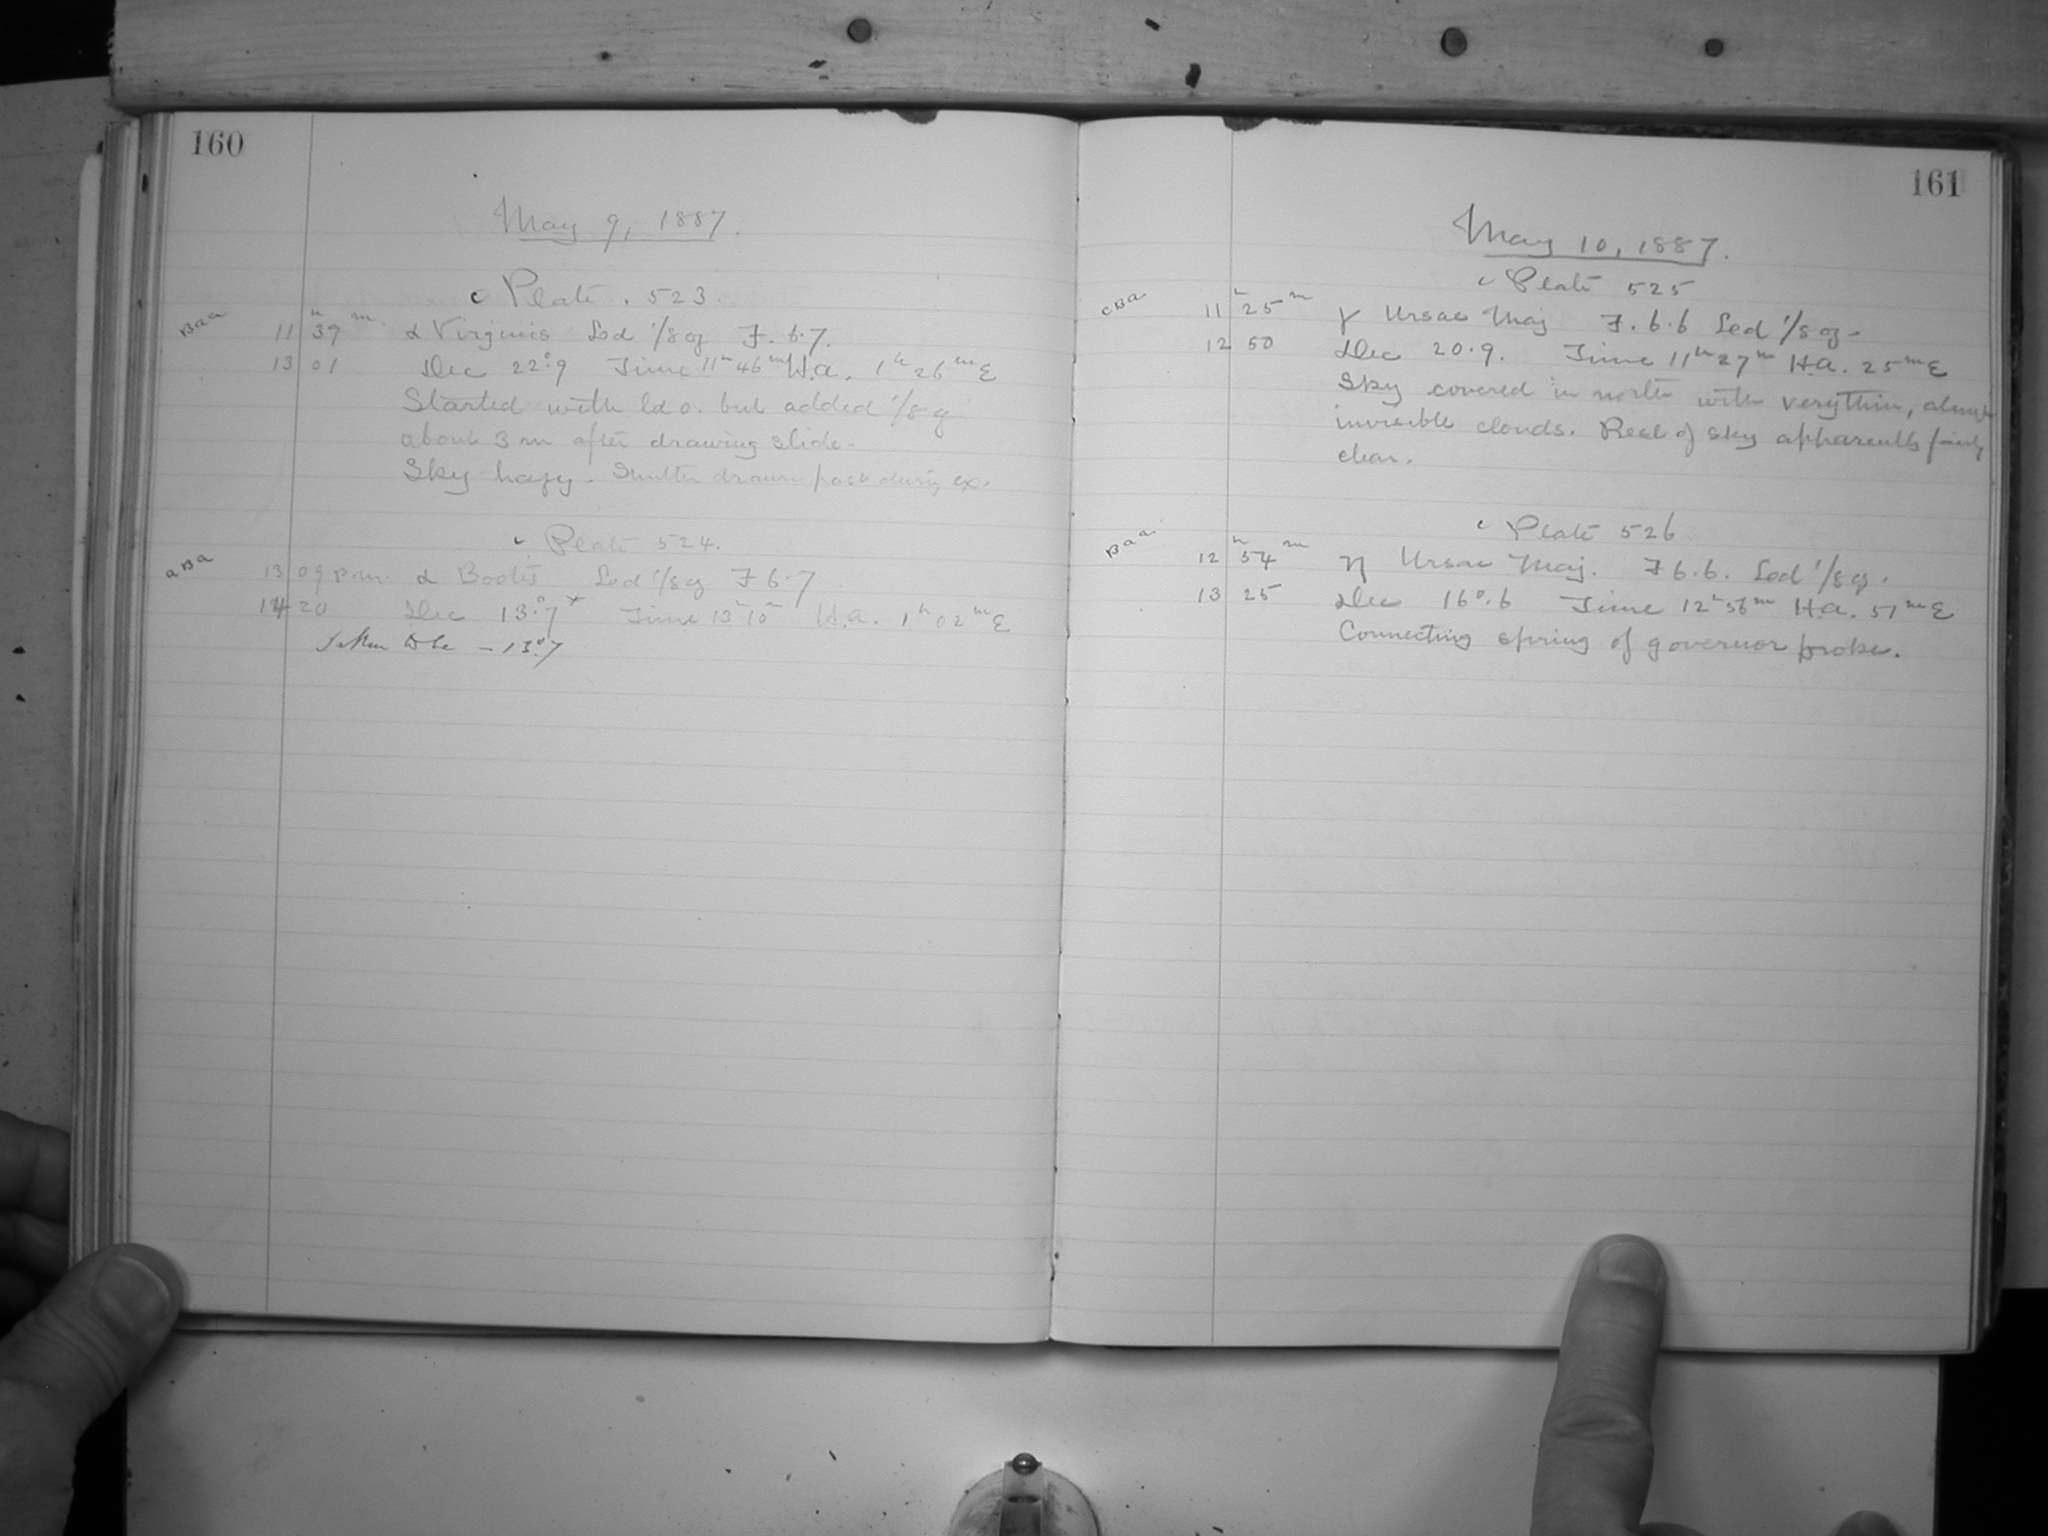 160
May 9, 1887.
c Plate. 523.
Baa 11 h 39 m. α Virginis Led 1/8 oz F. 6.7.
13 01 Dec 22°.9 Time 11h 46m H.a. 1h 26m E
Started with ld o. but added 1/8 oz
about 3 m after drawing slide.
Sky hazy. Shutter drawn past during ex.
c Plate 524.
aBa 13 09 p.m. α Bootis Led 1/8 oz F 6.7
14 20 Dec 13°.7* Time 13h 10m H.a. 1h 02m E
to be – 13°.7
161
May 10, 1887.
c Plate 525
cBa 11 h 25 m γ Ursae Maj F. 6.6 Led 1/8 oz.
12 50 Dec 20.9. Time 11h 27m H.a. 25m E
Sky covered in north with very thin, almost
invisible clouds. Rest of sky apparently fairly
clear.
c Plate 526.
Baa 12 h 54 m η Ursae Maj. F 6.6. Led 1/8 oz.
13 25 Dec 16°.6 Time 12h 56m H.a. 51m E
Connecting spring of governor broke.